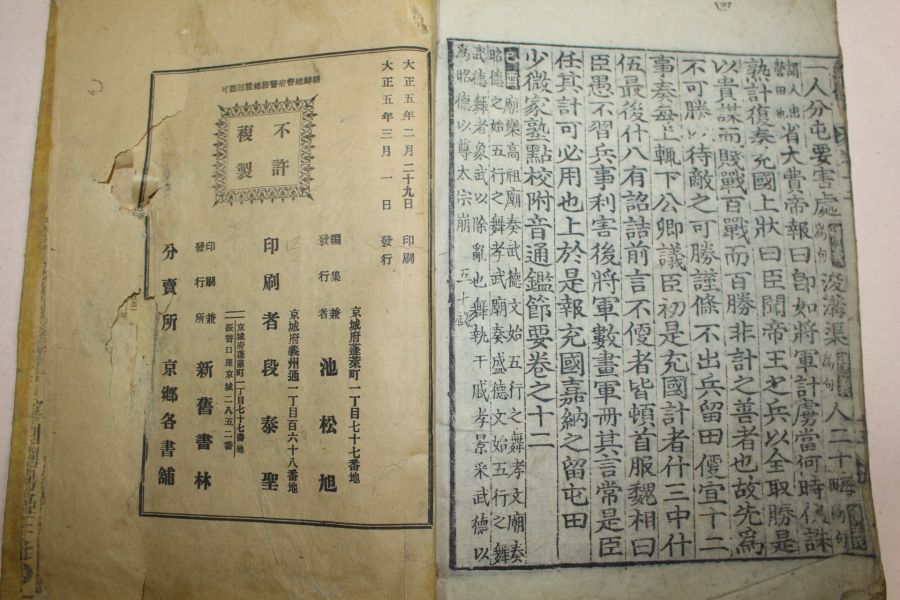 一人分屯要害處爲句浚溝渠爲句人二十畮爲句
省大費帝報曰卽如將軍計虜當何時伏誅
熟計復奏充國上狀曰臣聞帝王之兵以全取勝是
以貴謀而賤戰百戰而百勝非計之善者也故先爲
不可勝以待敵之可勝謹條不出兵留田便宜十二
事奏每上輒下公卿議臣初是充國計者什三中什
伍最後什八有詔詰前言不便者皆頓首服魏相曰
臣愚不習兵事利害後將軍數畫軍冊其言常是臣
任其計可必用也上於是報充國嘉納之留屯田
少微家塾點校附音通鑑節要卷之十二
廟樂高祖廟奏武德文始五行之舞孝文廟奏
昭德之始五行之舞孝武廟奏盛德文始五行之舞
武德舞者象武以除亂也舞執干戚孝景采武德以
爲昭德以尊太宗
朝鮮總督府警務總監部認可
不許
複製
大正五年二月二十九日 印刷
大正五年三月一日 發行
京城府蓬萊町一丁目七十七番地
編集兼
發行者 池松旭
京城府義州通一丁目百六十八番地
印刷者 段泰聖
京城府蓬萊町一丁目七十七番地
印刷兼
發行所 新舊書林
振替口座京城二八五二番
分賣所 京鄉各書舖